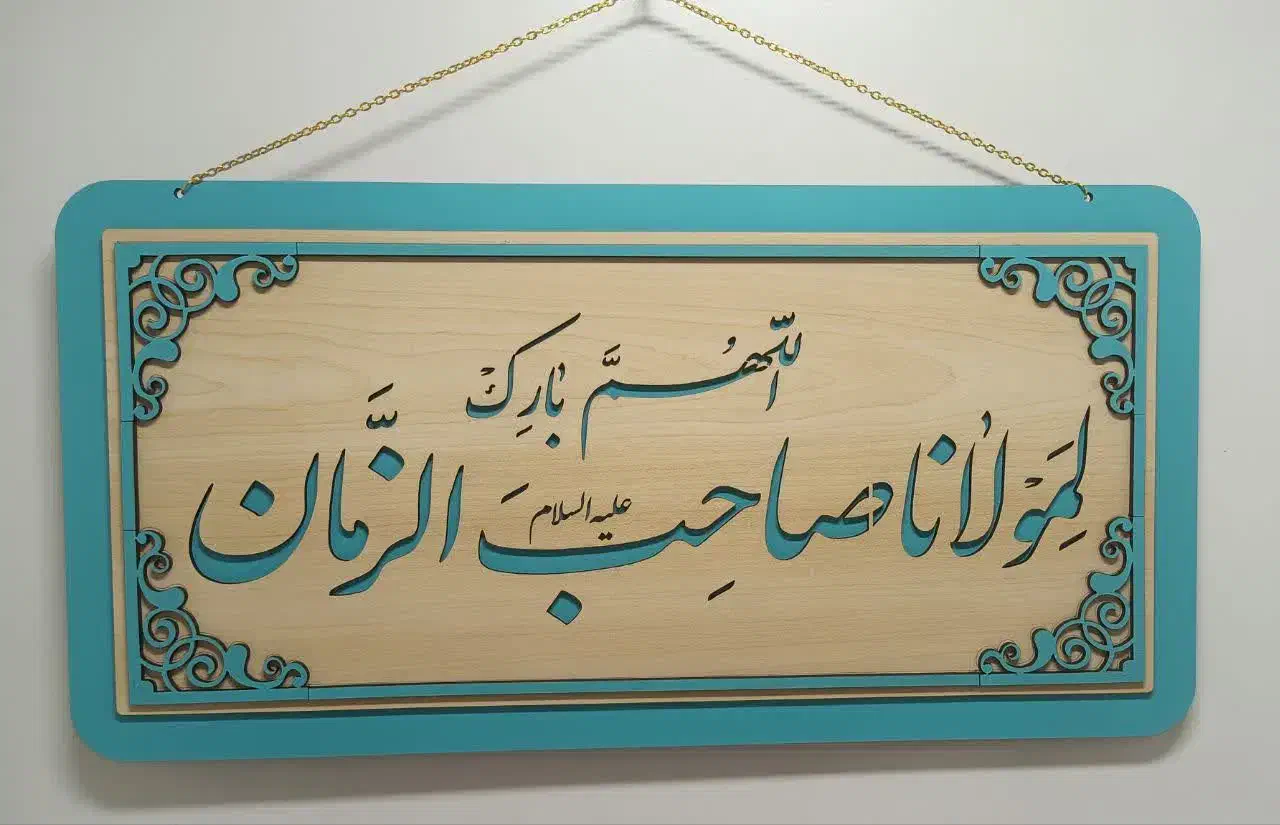 اللّهُمَّ بٰارِكْ
لِمَوْلٰانٰا صٰاحِبَ الزَّمان
علیه السلام